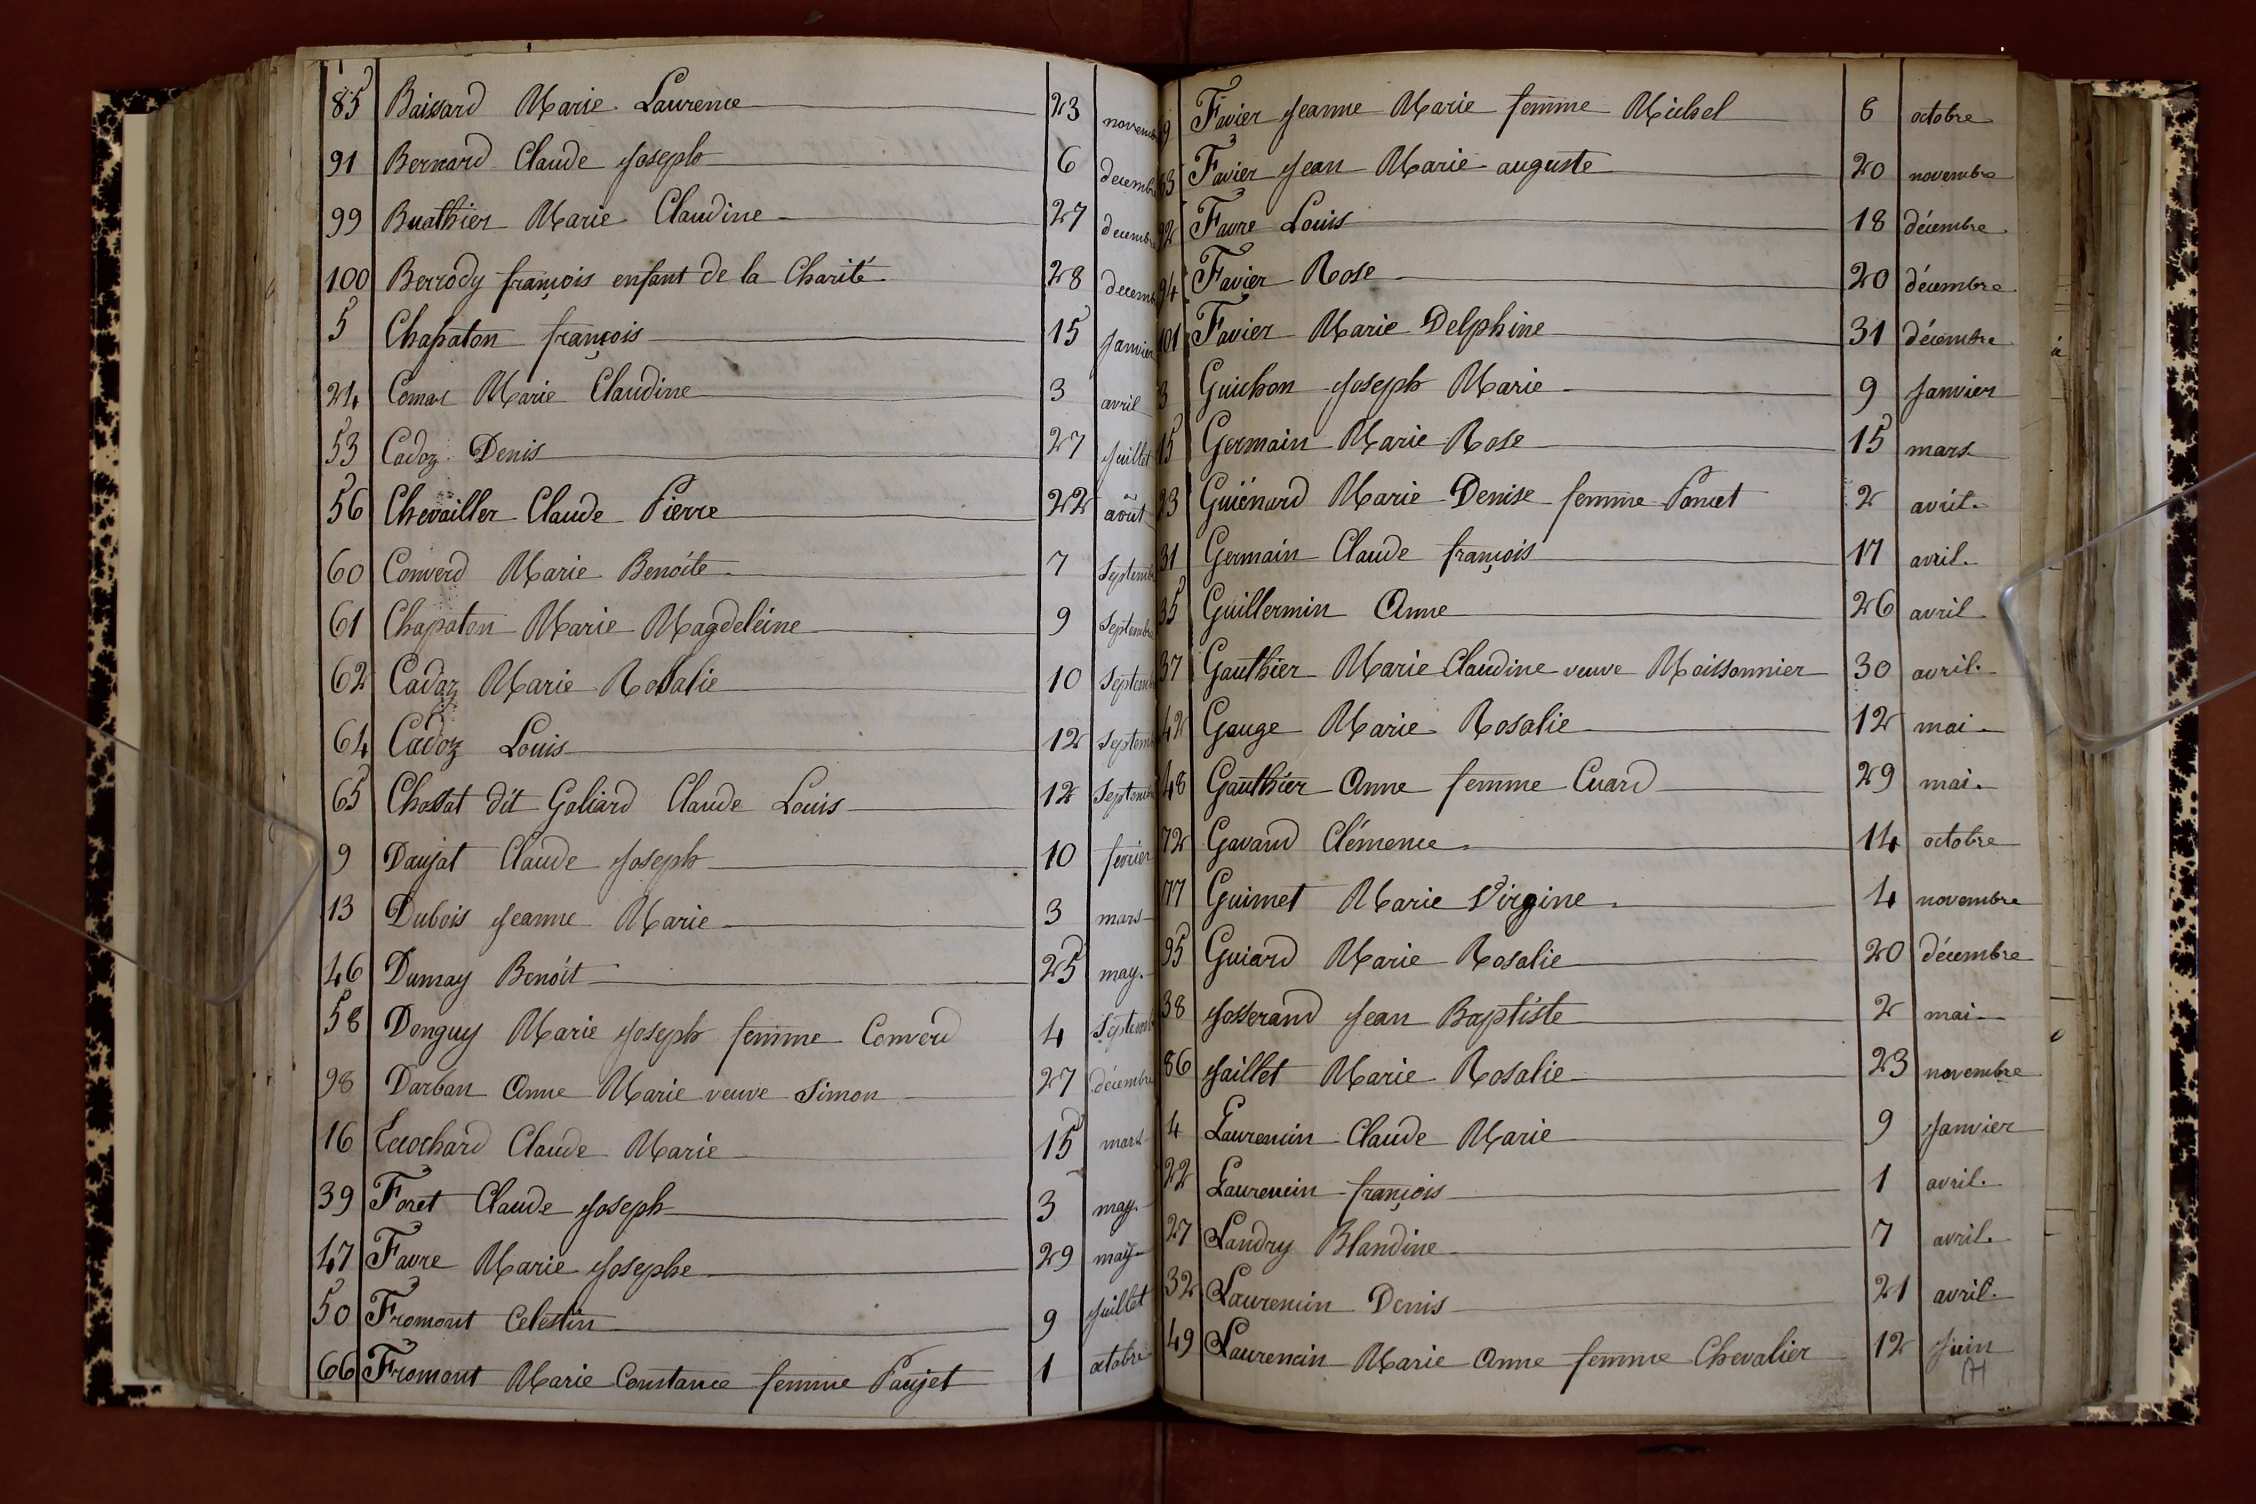 85 Baissard Marie Laurence 23 novembre
91 Bernard Claude Joseph 6 decembre
99 Buathier Marie Claudine 27 decembre
100 Berrody françois enfant de la Charité 28 decemb
5 Chapaton françois 15 Janvier
24 Comas Marie Claudine 3 avril
53 Cadoz Denis 27 Juillet
56 Chevailler Claude Pierre 22 août
60 Converd Marie Benoite 7 Septembre
61 Chapaton Marie Magdeleine 9 Septembre
62 Cadoz Marie Rosalie 10 Septemb
64 Cadoz Louis 12 Septemb
65 Chossat dit Goliard Claude Louis 12 Septembre
9 Daujat Claude Joseph 10 fevrier
13 Dubois Jeanne Marie 3 mars
46 Dumay Benoit 25 may.
58 Donguy Marie Joseph femme Converd 4 Septemb
98 Darban Anne Marie veuve Simon 27 décembre
16 Ecochard Claude Marie 15 mars
39 Foret Claude Joseph 3 may.
47 Favre Marie Josephe 29 may
50 Fromont Celestin 9 Juillet
66 Fromont Marie Constance femme Paujet 1 octobre
Favier Jeanne Marie femme Michel 6 octobre
83 Favier Jean Marie auguste 20 novembre
92 Favre Louis 18 décembre
94 Favier Rose 20 décembre
101 Favier Marie Delphine 31 décembre
3 Guichon Joseph Marie 9 Janvier
15 Germain Marie Rose 15 mars
23 Guiénard Marie Denise femme Poncet 2 avril.
31 Germain Claude françois 17 avril.
35 Guillermin Anne 26 avril
37 Gauthier Marie Claudine veuve Moissonnier 30 avril.
42 Gauge Marie Rosalie 12 mai
48 Gauthier Anne femme Cuard 29 mai.
72 Gavand Clémence 14 octobre
77 Guimet Marie Virgine 4 novembre
95 Guiard Marie Rosalie 20 décembre
38 Josserand Jean Baptiste 2 mai
86 Jaillet Marie Rosalie 23 novembre
4 Laurencin Claude Marie 9 Janvier
22 Laurencin françois 1 avril.
27 Landry Blandine 7 avril.
32 Laurencin Denis 21 avril.
49 Laurencin Marie Anne femme Chevalier 12 Juin